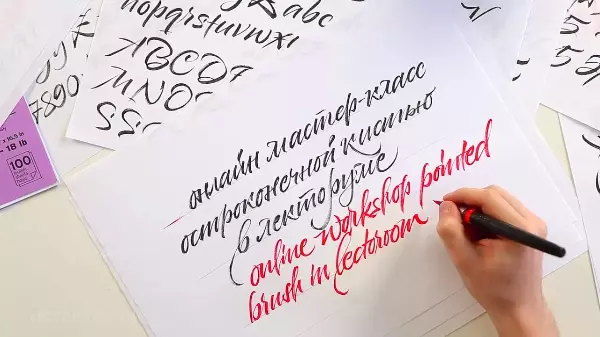 abc
nopqrstuvwxyz
ABCD
MNO
7890
100
18 lb
онлайн мастер-класс
остроконечной кистью
в лекторуме
online workshop pointed
brush in lectoroom